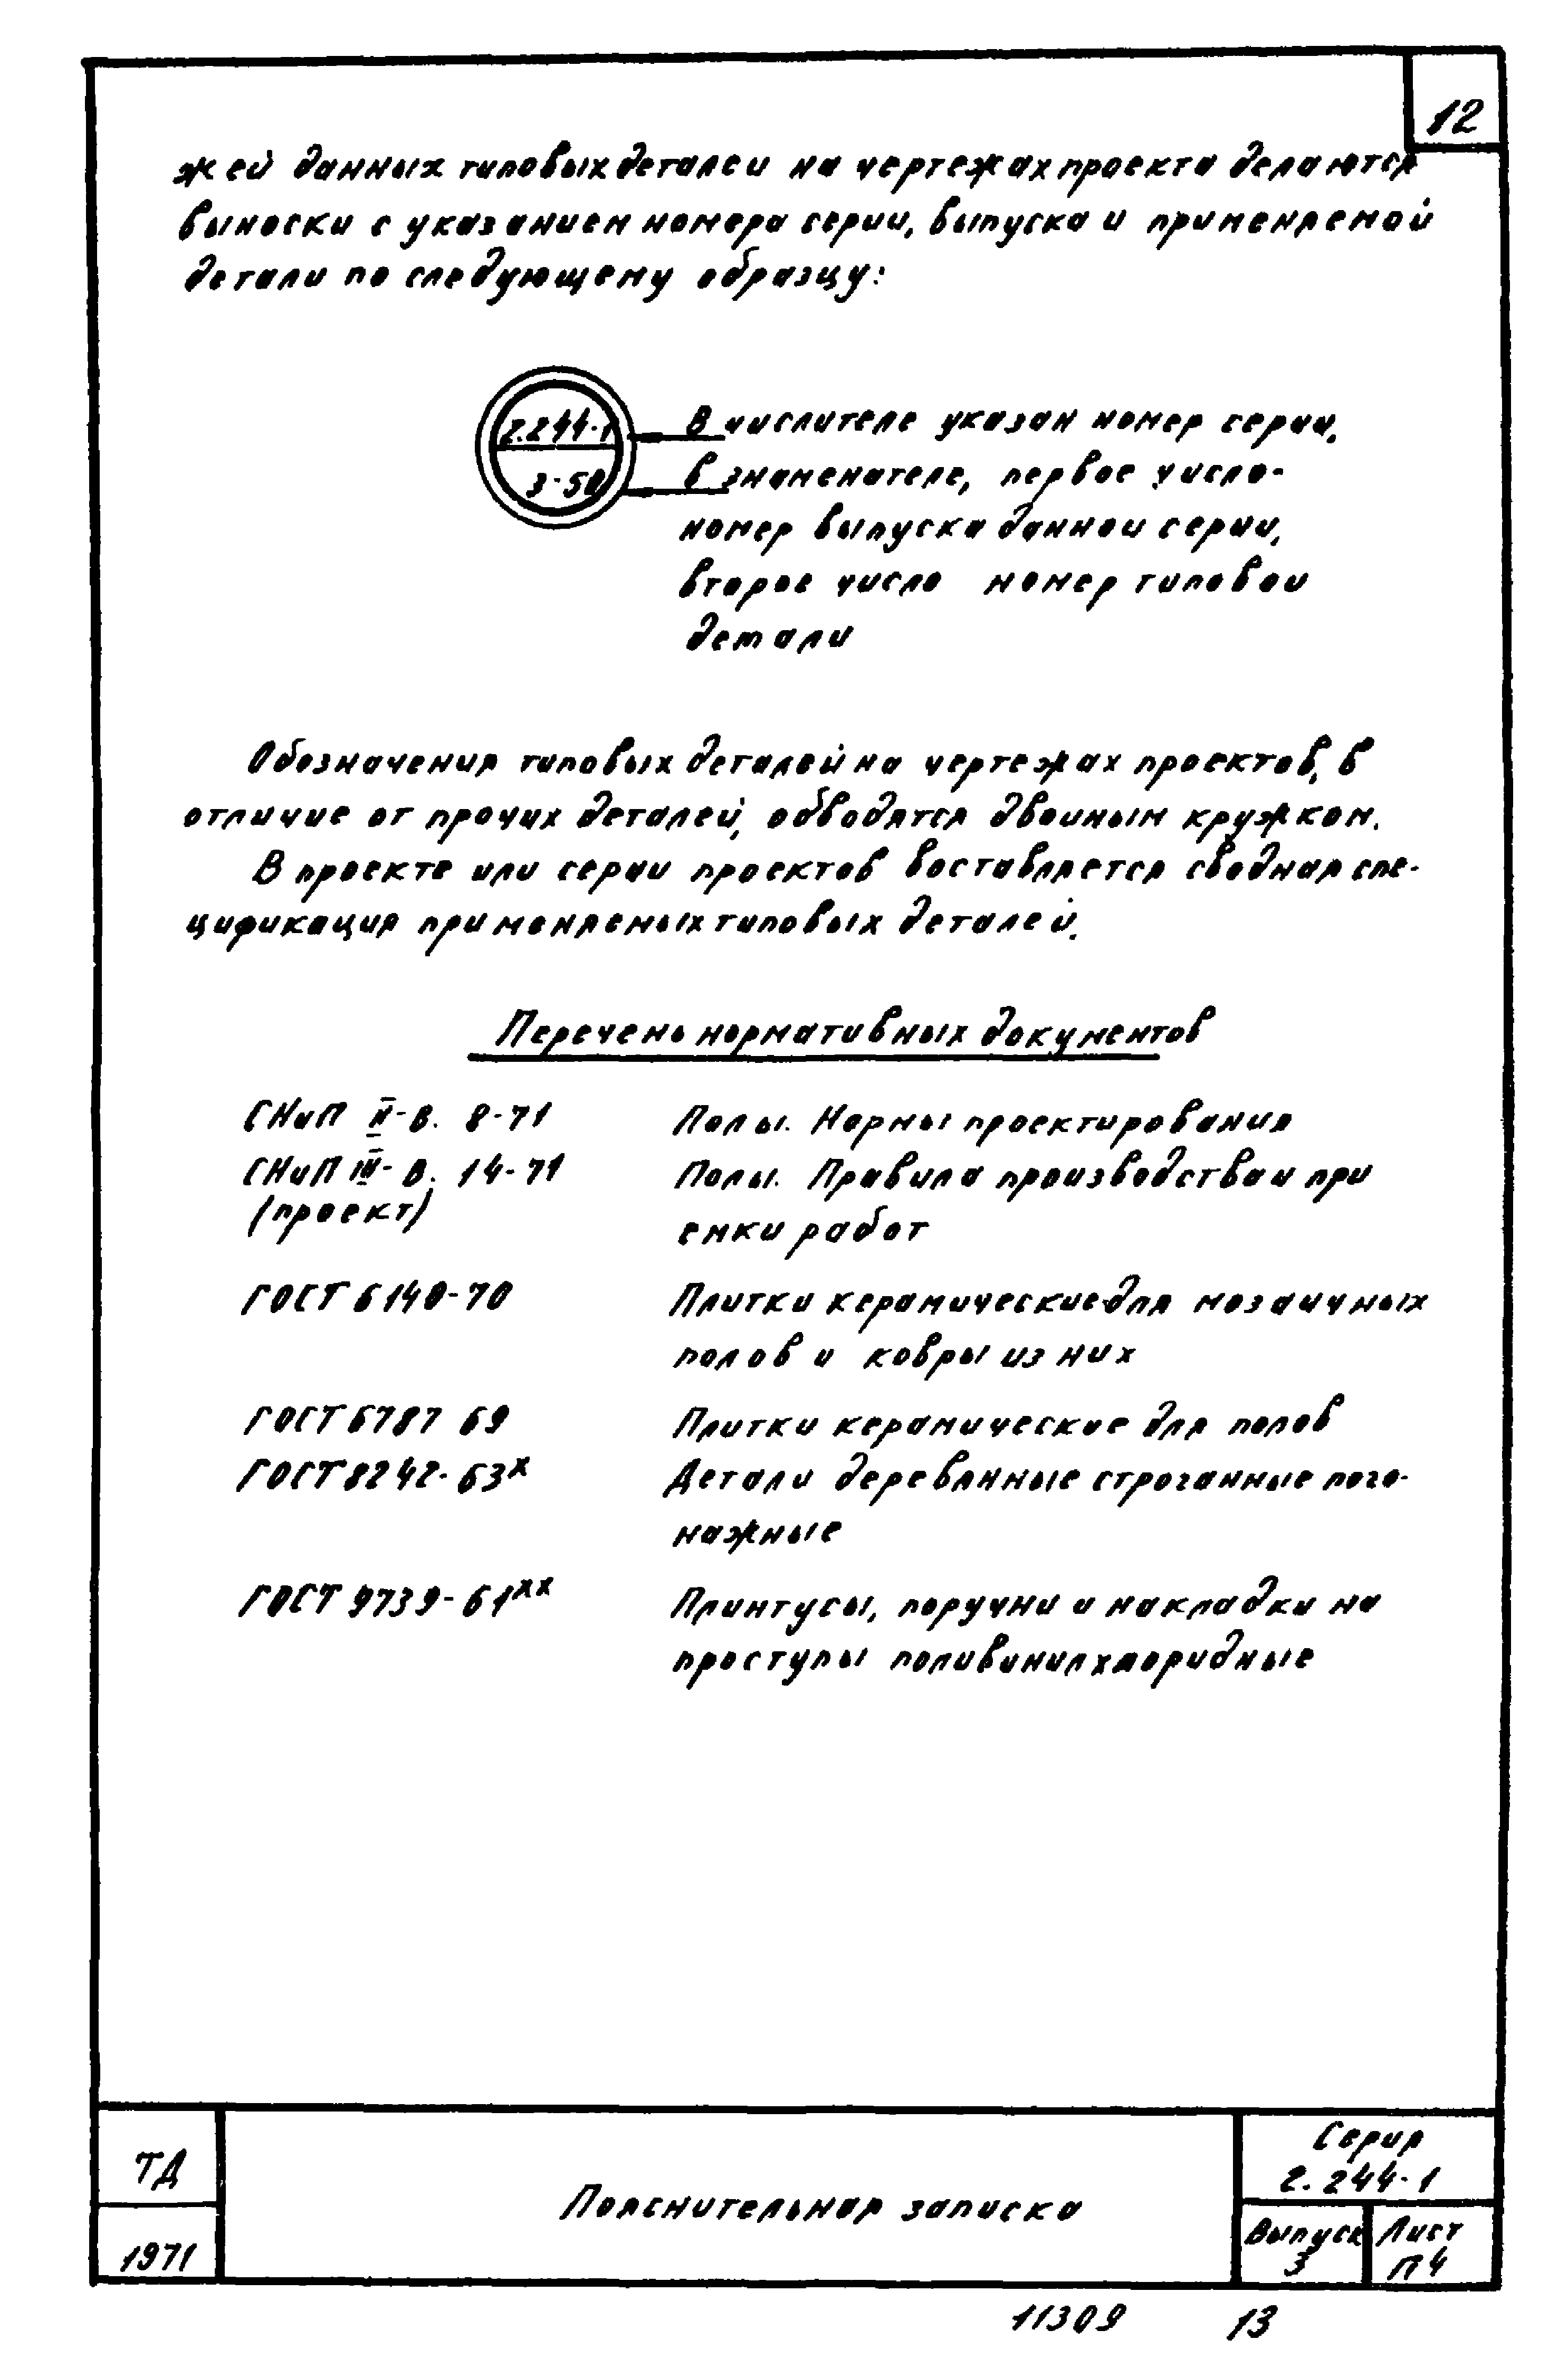 12
жей данных типовых деталей на чертежах проекта делаются
выноски с указанием номера серии, выпуска и применяемой
детали по следующему образцу:
2.244-1
3-50
В числителе указан номер серии,
в знаменателе, первое число-
номер выпуска данной серии,
второе число номер типовой
детали
Обозначения типовых деталей на чертежах проектов, в
отличие от прочих деталей, обводятся двойным кружком.
В проекте или серии проектов воставляется сводная спе-
цификация применяемых типовых деталей.
Перечень нормативных документов
СНиП II-В. 8-71 Полы. Нормы проектирования
СНиП III-В. 14-71 Полы. Правила производства и при
(проект) емки работ
ГОСТ 6140-70 Плитки керамические для мозаичных
полов и ковры из них
ГОСТ 6787 69 Плитки керамические для полов
ГОСТ 8242-63х Детали деревянные строганные пого-
нажные
ГОСТ 9739-61хх Плинтусы, поручни и накладки на
проступы поливинилхлоридные
ТД
1971
Пояснительная записка
Серия
2.244-1
Выпуск
3
Лист
П4
11309 13